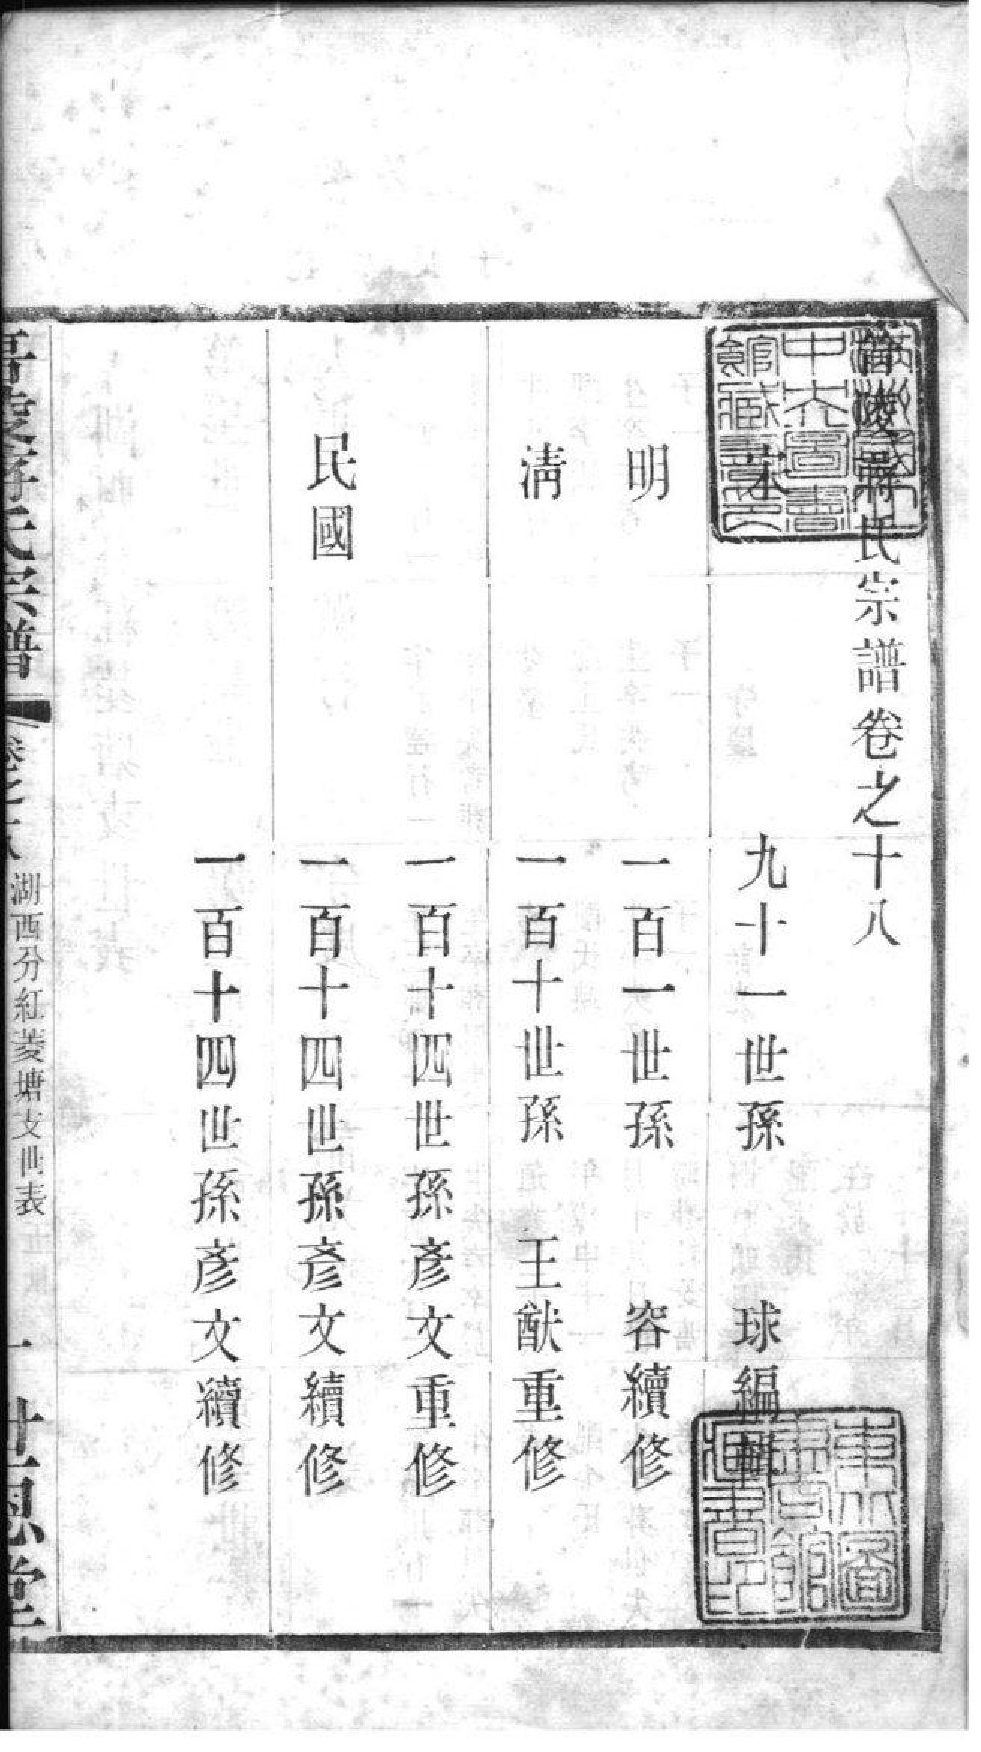 晉陵蔣氏宗譜卷之十八
宋 九十一世孫 球編輯
明 一百一世孫 容續修
清 一百十世孫 王猷重修
一百十四世孫彥文重修
民國 一百十四世孫彥文續修
一百十四世孫彥文續修
晉陵蔣氏宗譜 卷之十八 湖西分紅菱塘支世表 一 世恩堂